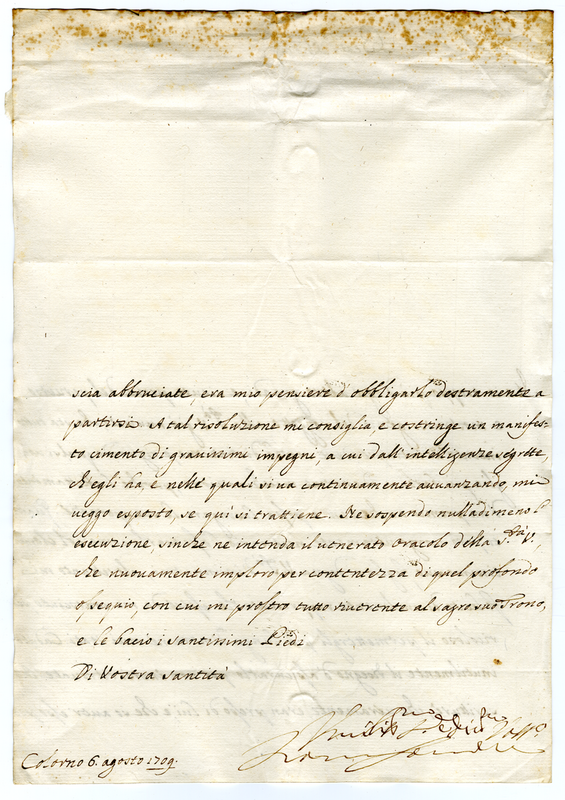 scia abbruciate, era mio pensiere d'obbligarlo destramente a
partirsi. A tal risoluzione mi consiglia, e costringe un manifes-
to cimento di gravissimi impegni, a cui dall'intelligenze segrete,
ch'egli ha, e nelle quali si va continuamente avvanzando, mi
veggo esposto, se quì si trattiene. Ne sospendo nulladimeno l'
esecuzione, sinche ne intenda il venerato oracolo della S.tà V.,
che nuovamente imploro per contentezza di quel profondo
ossequio, con cui mi prostro tutto riverente al sagro suo Trono,
e le bacio i santissimi Piedi
Di Vostra Santità
Colorno 6. agosto 1709.